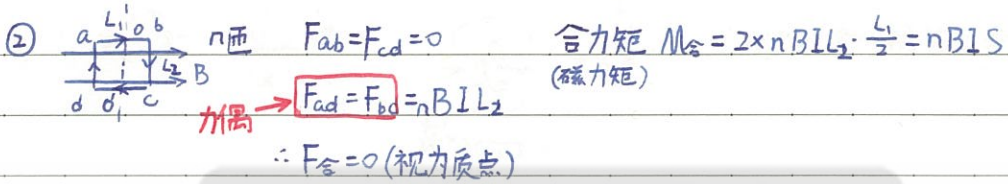 ② a L₁ o b n匝 Fab=Fcd=0 合力矩 M合=2×nBIL₂·L₁/2=nBIS
L₂ B (磁力矩)
d o₁ c 力偶→ Fad=Fbd=nBIL₂
∴F合=0(视为质点)